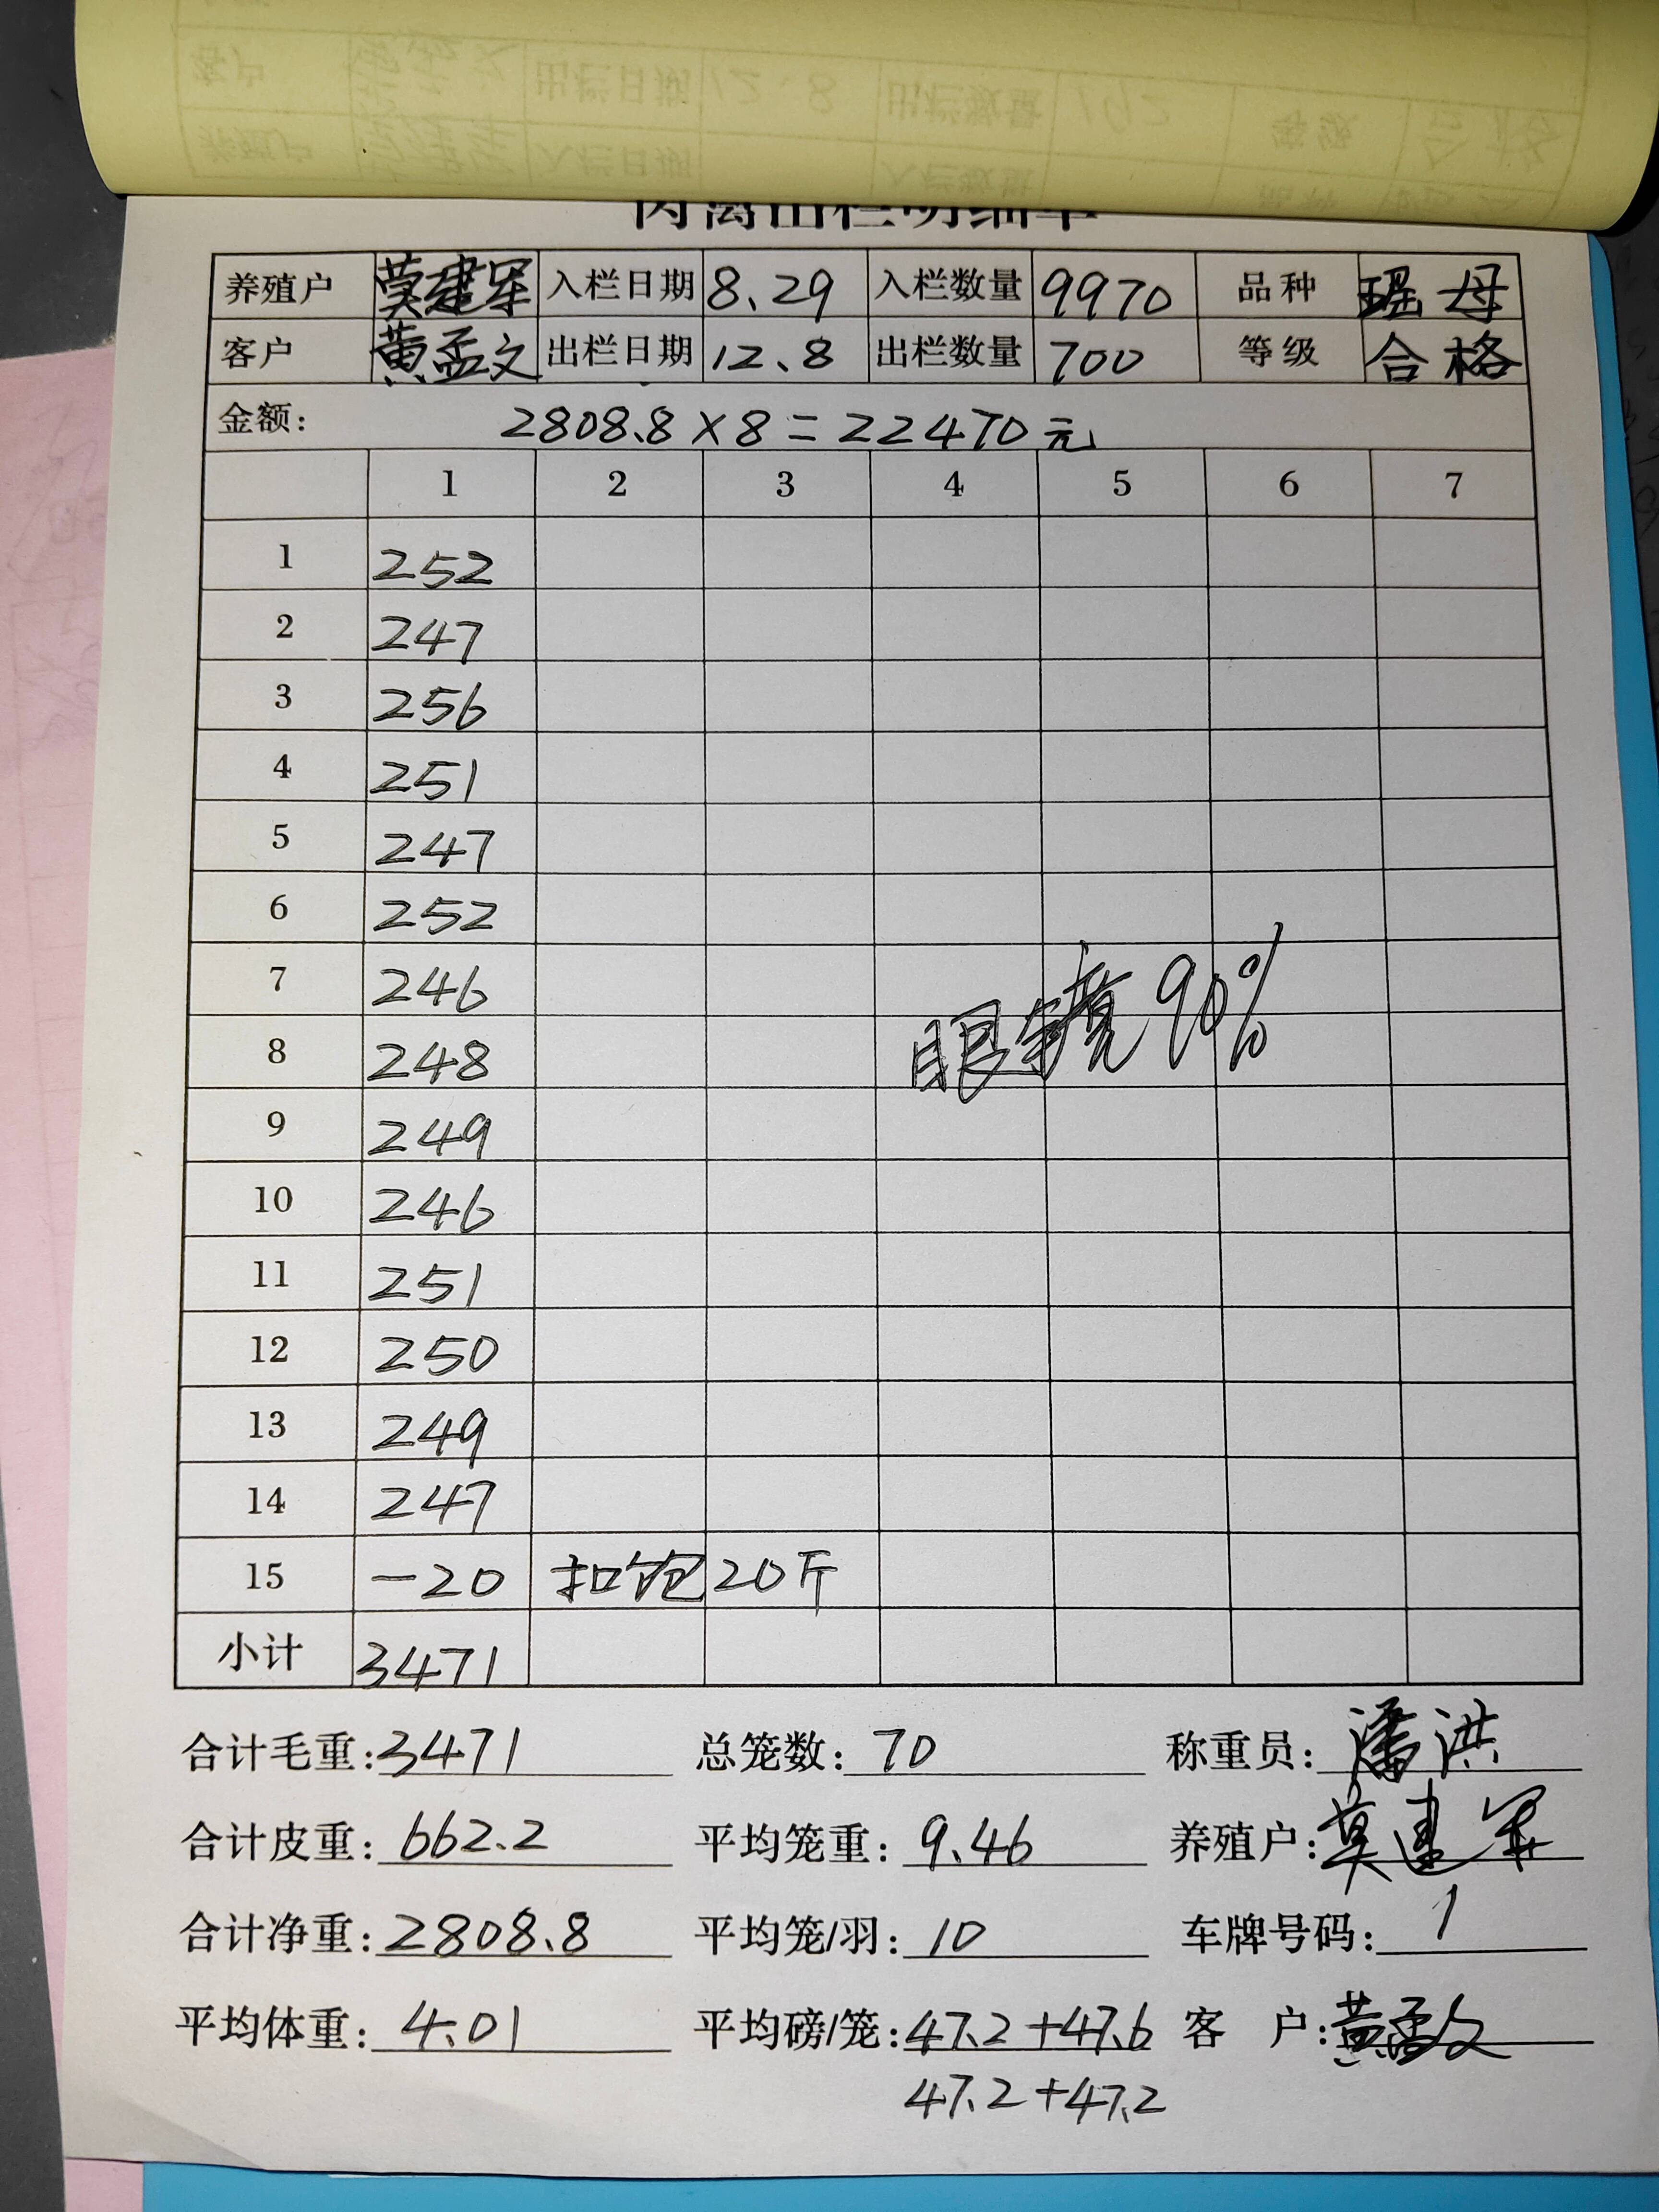 养殖户 莫建军 入栏日期 8.29 入栏数量 9970 品种 瑶母
客户 黄孟文 出栏日期 12.8 出栏数量 700 等级 合格
金额: 2808.8×8=22470元
1 2 3 4 5 6 7
1 252
2 247
3 256
4 251
5 247
6 252
7 246
眼镜90%
8 248
9 249
10 246
11 251
12 250
13 249
14 247
15 -20 扣饱20斤
小计 3471
合计毛重:3471 总笼数:70 称重员:潘洪
合计皮重:662.2 平均笼重:9.46 养殖户:莫建军
合计净重:2808.8 平均笼/羽:10 车牌号码:1
平均体重:4.01 平均磅/笼:47.2+47.6 客 户:黄孟文
47.2+47.2